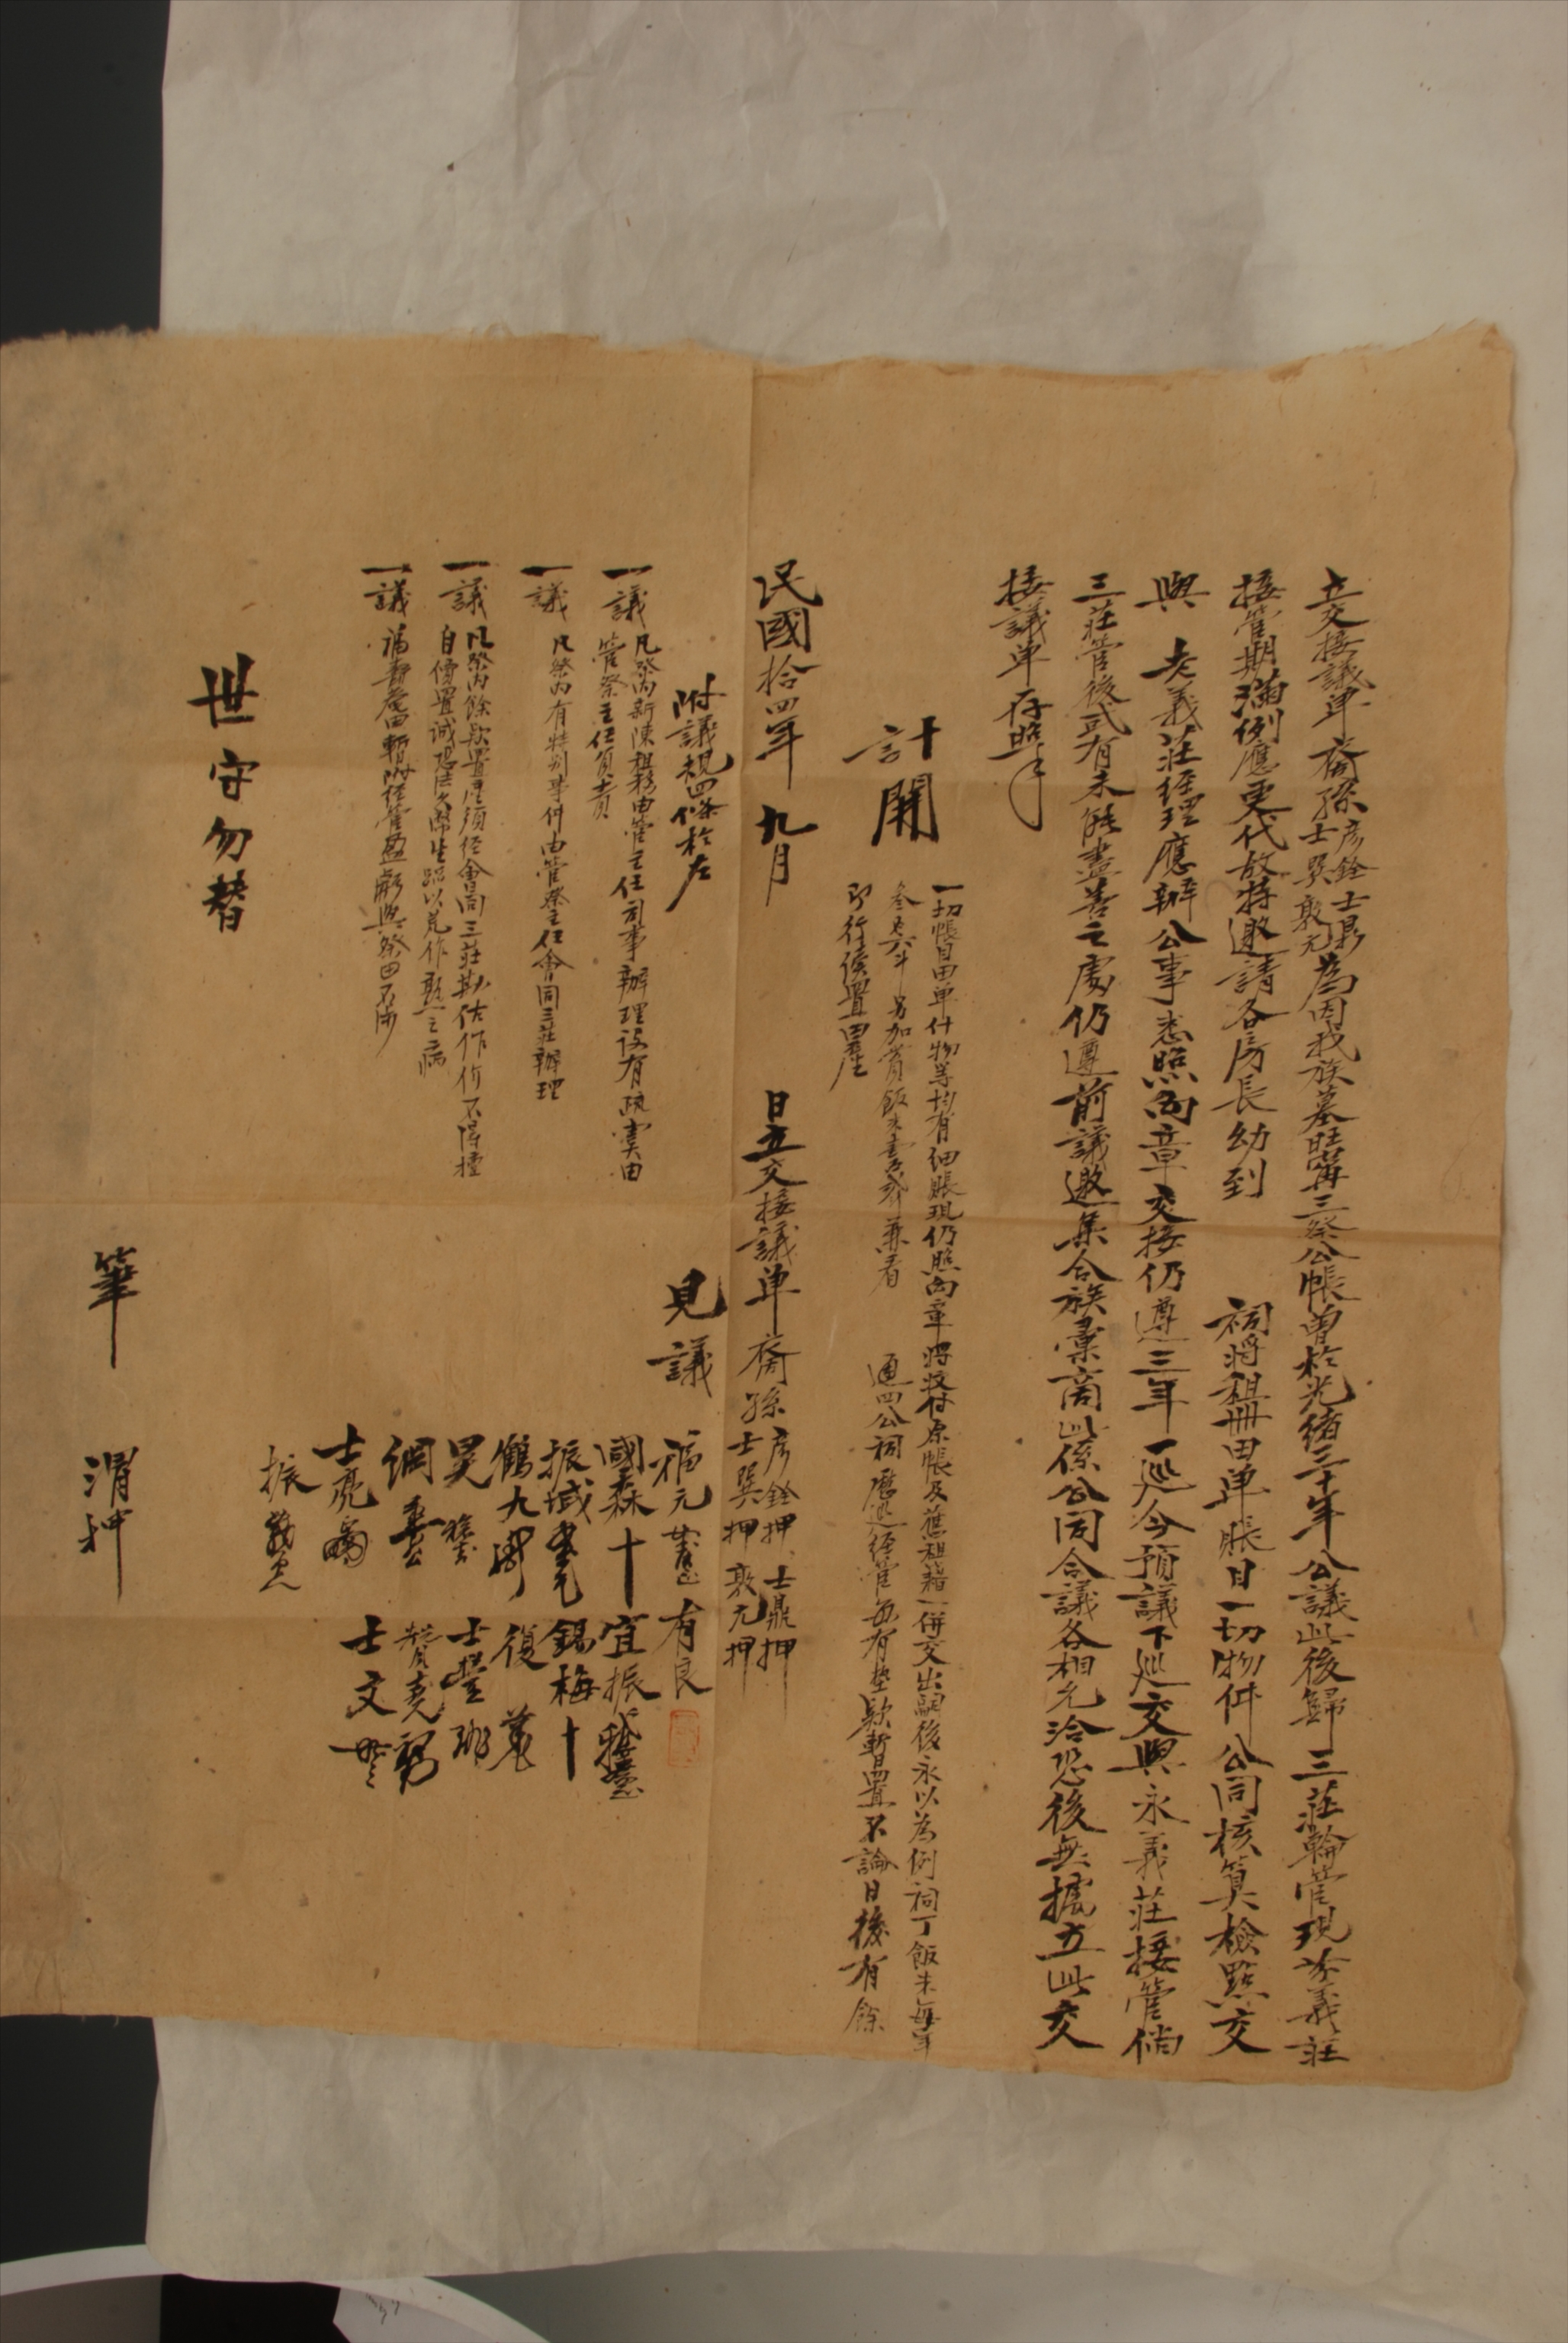 立交接議单裔孫彥銓士鼎士巽敦元為因我族墓旺甯三祭公帳曾於光緒三十年公議此後歸三莊輪管現義莊
接管期滿例應更代故特邀請各房長幼到祠將租冊田单賬目一切物件公同核算檢點交
與老義莊經理應辦公事悉照向章交接仍遵三年一巡今預議下巡交與永義莊接管倘
三莊管後或有未能盡善之處仍遵前議邀集合族稟商此係公同合議各相允洽恐後無據立此交
接議单存照
計開
一切帳目田单什物等均有細賬現仍照向章將收付原帳及舊租籍一併交出嗣後永以為例祠丁飯米每年
叁石六斗另加貲飯米壹石弍斗兼看通四公祠歷巡經管每有墊款暫置不論日後有餘
即行續置田產
民國拾四年九月日立交接議单裔孫彥銓押士鼎押士巽押敦元押
附議規四條於左
一議凡祭內新陳租務由管主任司事辦理設有疎虞由
管祭主任負責
一議凡祭內有特別事件由管祭主任會同三莊辦理
一議凡祭內餘款置產須經會同三莊勘估作价不得擅
自價置誠恐法久弊生蹈以荒作熟之病
一議福壽菴田暫附經管盈虧與祭田不涉
見議
福元 有良
國森十 宜振
振域 錫梅十
鶴九 復
昊 士豐
綱 贊堯
士亮 士文
振
世守勿替
筆 渭押